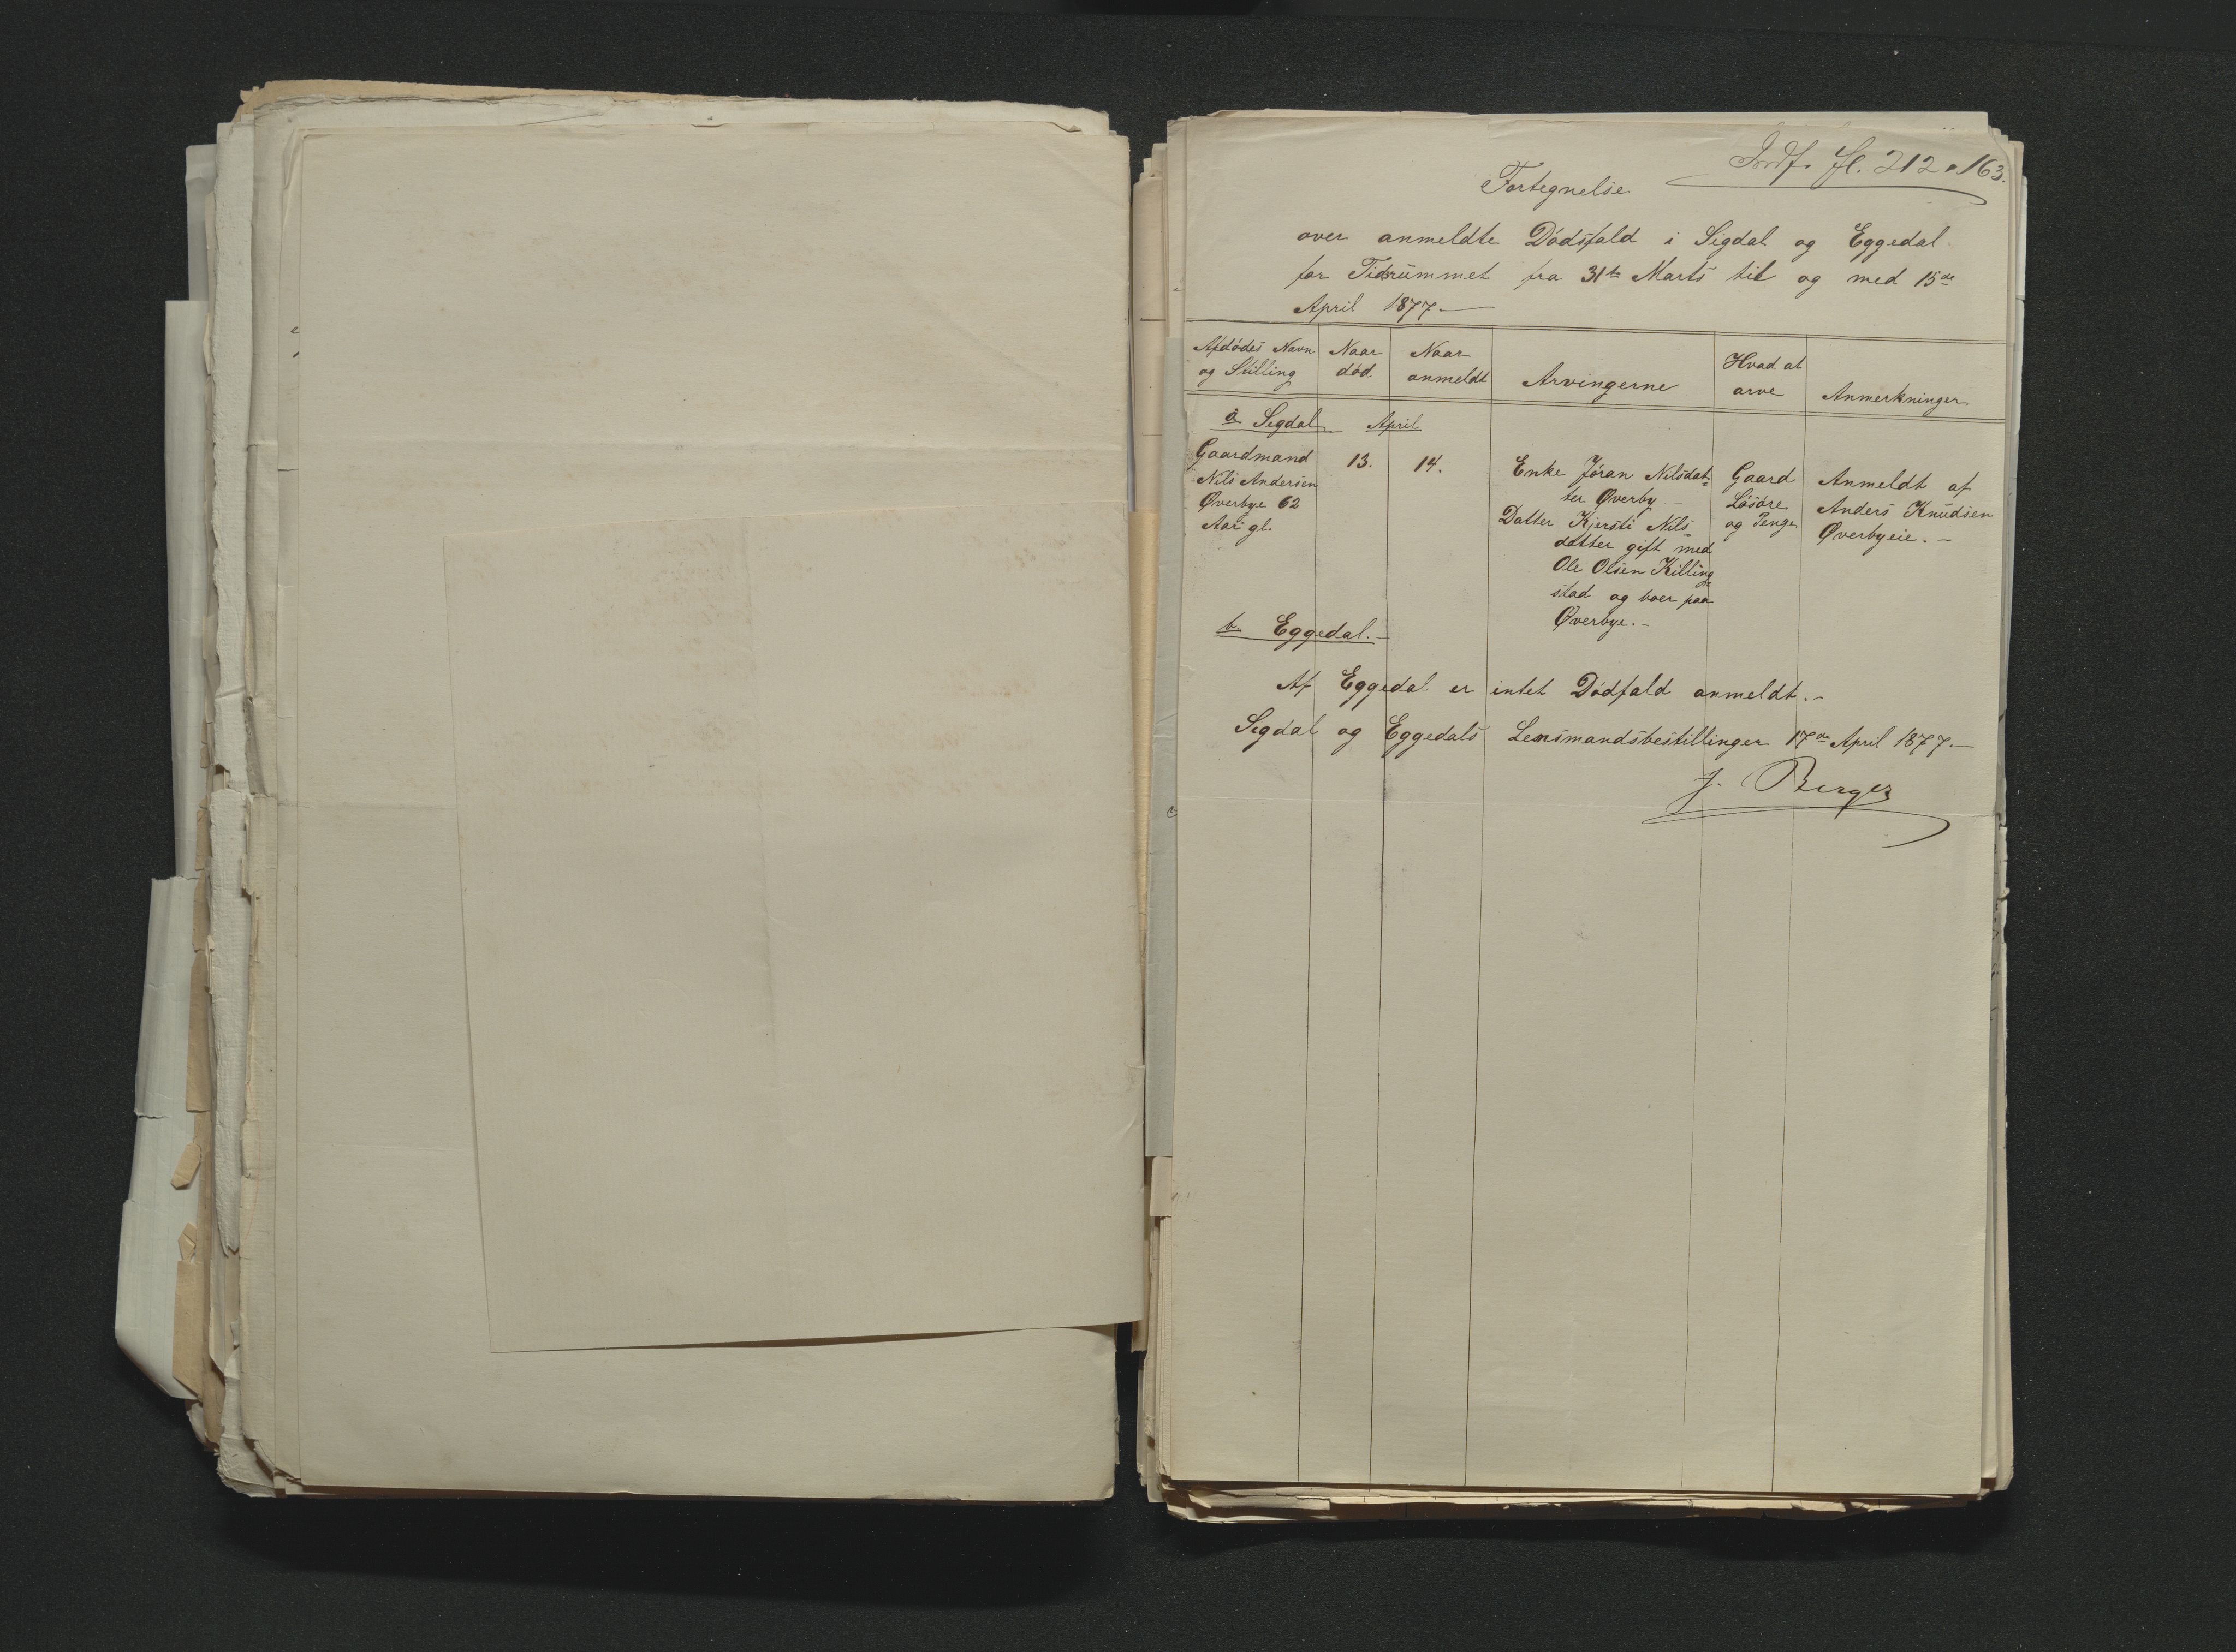 Indf. fl. 212 o 163.
Fortegnelse
over anmeldte Dødsfald i Sigdal og Eggedal
for Tidsrummet fra 31te Marts til og med 15de
April 1877.—
Afdødes Navn og Stilling | Naar død | Naar anmeldt | Arvingerne | Hvad at arve | Anmerkninger
a Sigdal April
Gaardmand 13. 14. Enke Jøran Nilsdat= Gaard Anmeldt af
Nils Andersen ter Øverby — Løsøre Anders Knudsen
Øverbye 62 Datter Kjersti Nils= og Penge Øverbyeie. —
Aar gl. datter gift med
Ole Olsen Killing=
stad og boer paa
Øverbye. —
b Eggedal. —
Af Eggedal er intet Dødfald anmeldt. —
Sigdal og Eggedals Lensmandsbestillinger 17de April 1877. —
J. Berger